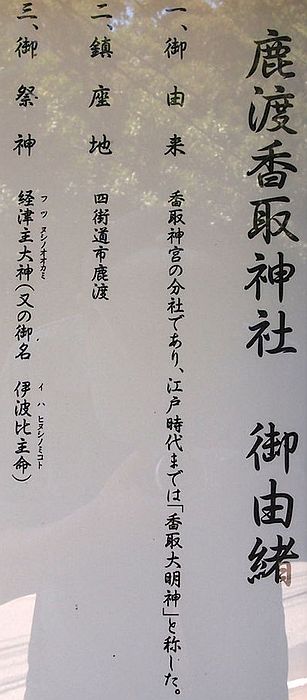 鹿渡香取神社　御由緒
一、御由来　香取神宮の分社であり、江戸時代までは「香取大明神」と称した。
二、鎮座地　四街道市鹿渡
三、御祭神　経津主大神（又の御名　伊波比主命）
フツヌシノオオカミ　イハヒヌシノミコト